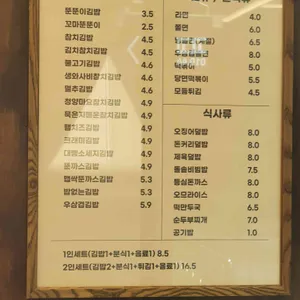 뚠뚠이김밥 3.5
꼬마뚠뚠이 2.5
참치김밥 4.5
김치참치김밥 4.9
불고기김밥 4.9
생와사비참치김밥 4.9
멸추김밥 4.9
청양마요참치김밥 4.9
묵은지 김밥 4.9
햄치즈김밥 4.9
크래미김밥 4.9
대왕소세지김밥 4.9
돈까스김밥 4.9
떡갈비김밥 5.3
밥없는김밥 5.3
우삼겹김밥 5.9
라면 4.0
쫄면 6.0
떡볶이 5.0
당면떡볶이 5.5
모듬튀김 4.5
식사류
오징어덮밥 8.0
돈까덮밥 8.0
제육덮밥 8.0
돌솥비빔밥 7.5
등심돈까스 8.0
오므라이스 8.0
떡만두국 6.5
순두부찌개 7.0
공기밥 1.0
1인세트(김밥1+분식1+음료1) 8.5
2인세트(김밥2+분식1+튀김1+음료1) 16.5